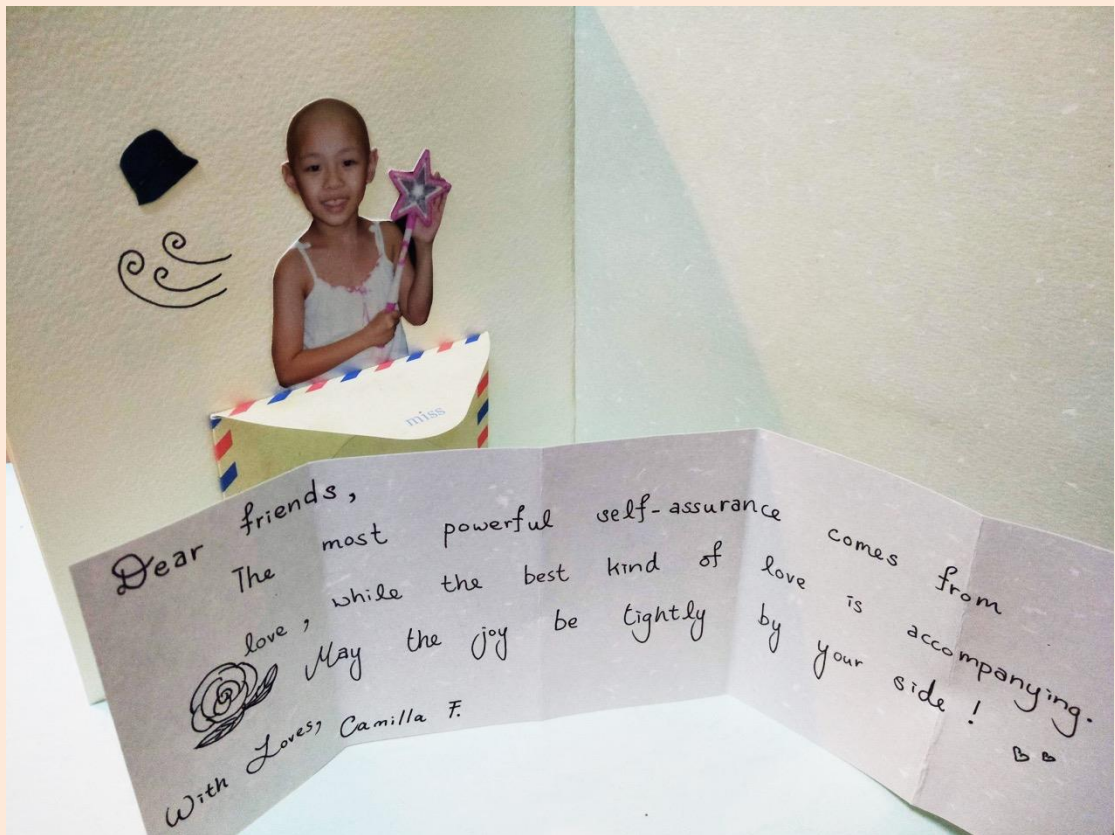 miss
Dear friends,
The most powerful self-assurance comes from
love, while the best kind of love is accompanying.
May the joy be tightly by your side!
With Loves, Camilla F.